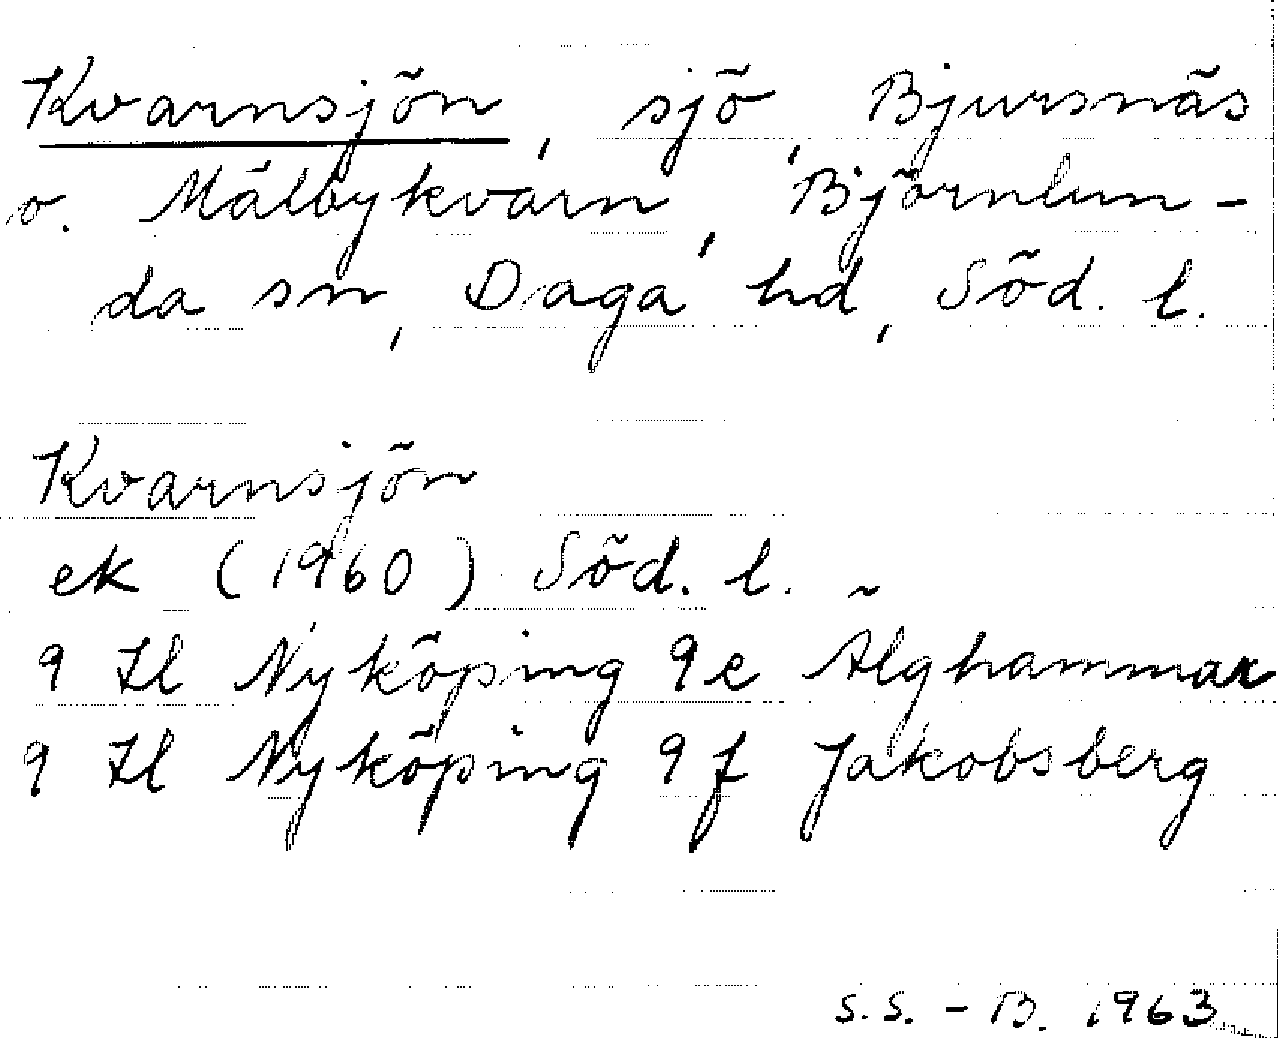 Kvarnsjön, sjö, Bjursnäs
o. Målbykvarn, Björnlun-
da sn, Daga hd, Söd. l.
Kvarnsjön
ek (1960) Söd. l.
9 Il Nyköping 9e Älghammar
9 Il Nyköping 9f Jakobsberg
S.S. - B. 1963